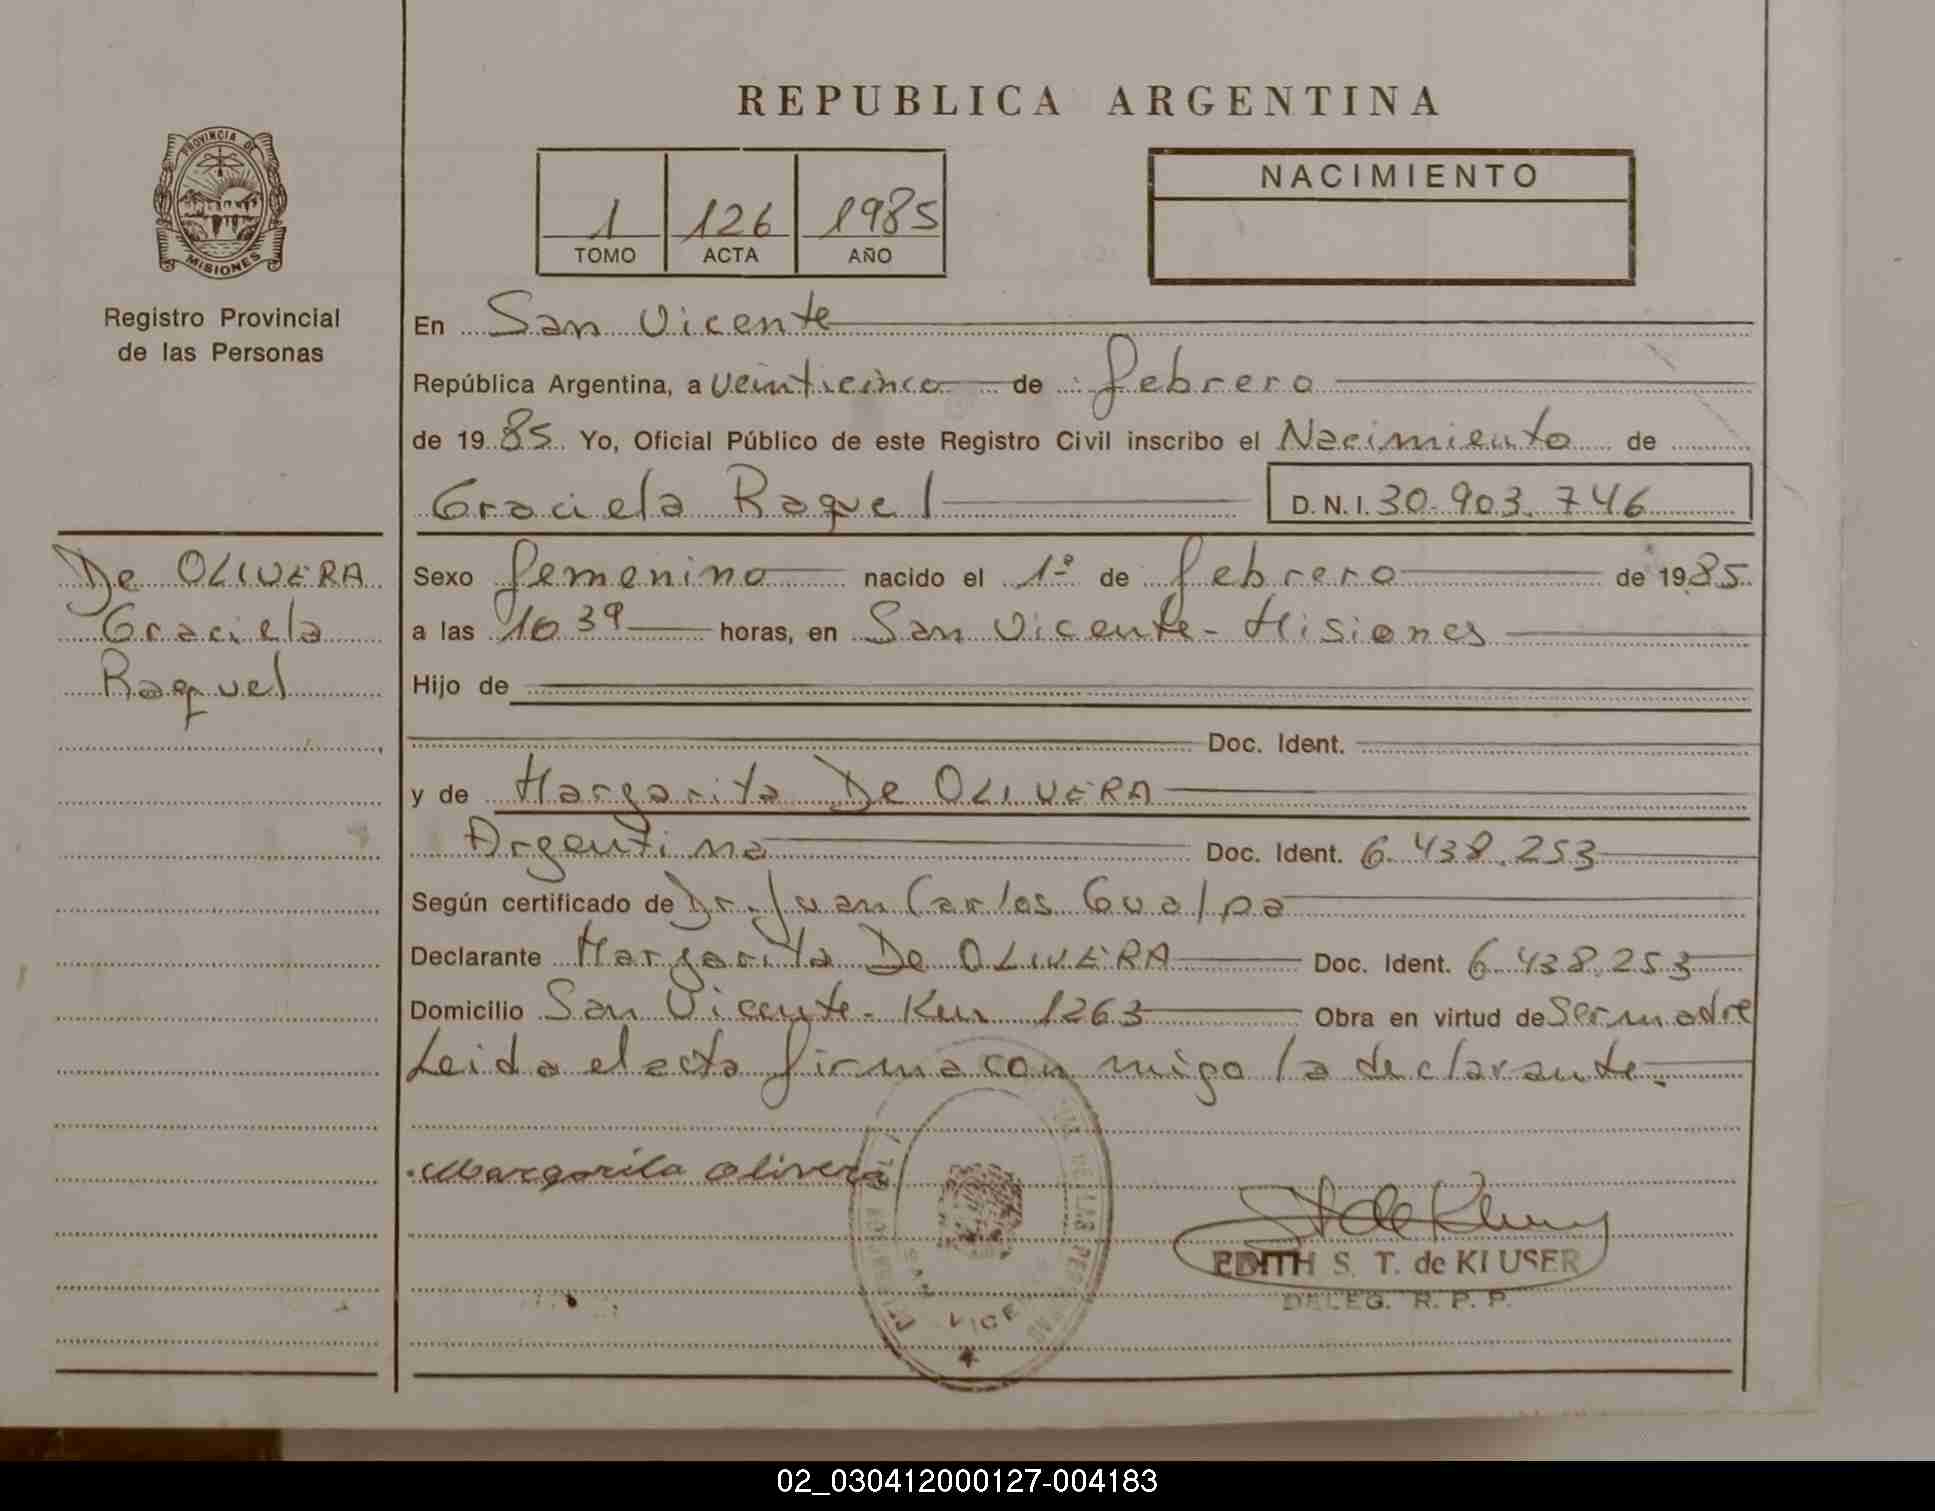 REPUBLICA ARGENTINA
PROVINCIA DE
MISIONES
Registro Provincial
de las Personas
1 126 1985
TOMO ACTA AÑO
NACIMIENTO
En San Vicente
República Argentina, a veinticinco de febrero
de 1985 Yo, Oficial Público de este Registro Civil inscribo el Nacimiento de
Graciela Raquel D.N.I. 30.903.746
De OLIVERA
Graciela
Raquel
Sexo femenino nacido el 1º de febrero de 1985
a las 10 39 horas, en San Vicente - Misiones
Hijo de
Doc. Ident.
y de Margarita De OLIVERA
Argentina Doc. Ident. 6.438.253
Según certificado de Dr. Juan Carlos Gualpa
Declarante Margarita De OLIVERA Doc. Ident. 6.438.253
Domicilio San Vicente - Km 1263 Obra en virtud de Ser madre
Leida el acta firma con migo la declarante.
Margarita Olivera
SAN VICENTE
EDITH S. T. de KLUSER
DELEG. R. P. P.
02_030412000127-004183